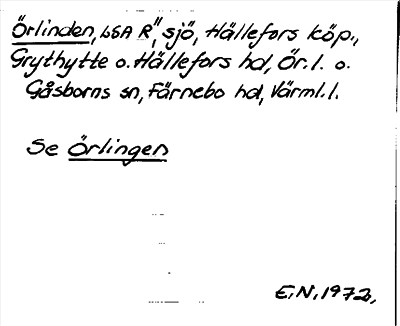 Örlinden, LSA R", sjö, Hällefors köp.,
Grythytte o. Hällefors hd, Ör. l. o.
Gåsborns sn, Färnebo hd, Värml. l.
Se Örlingen
E.N. 1972.